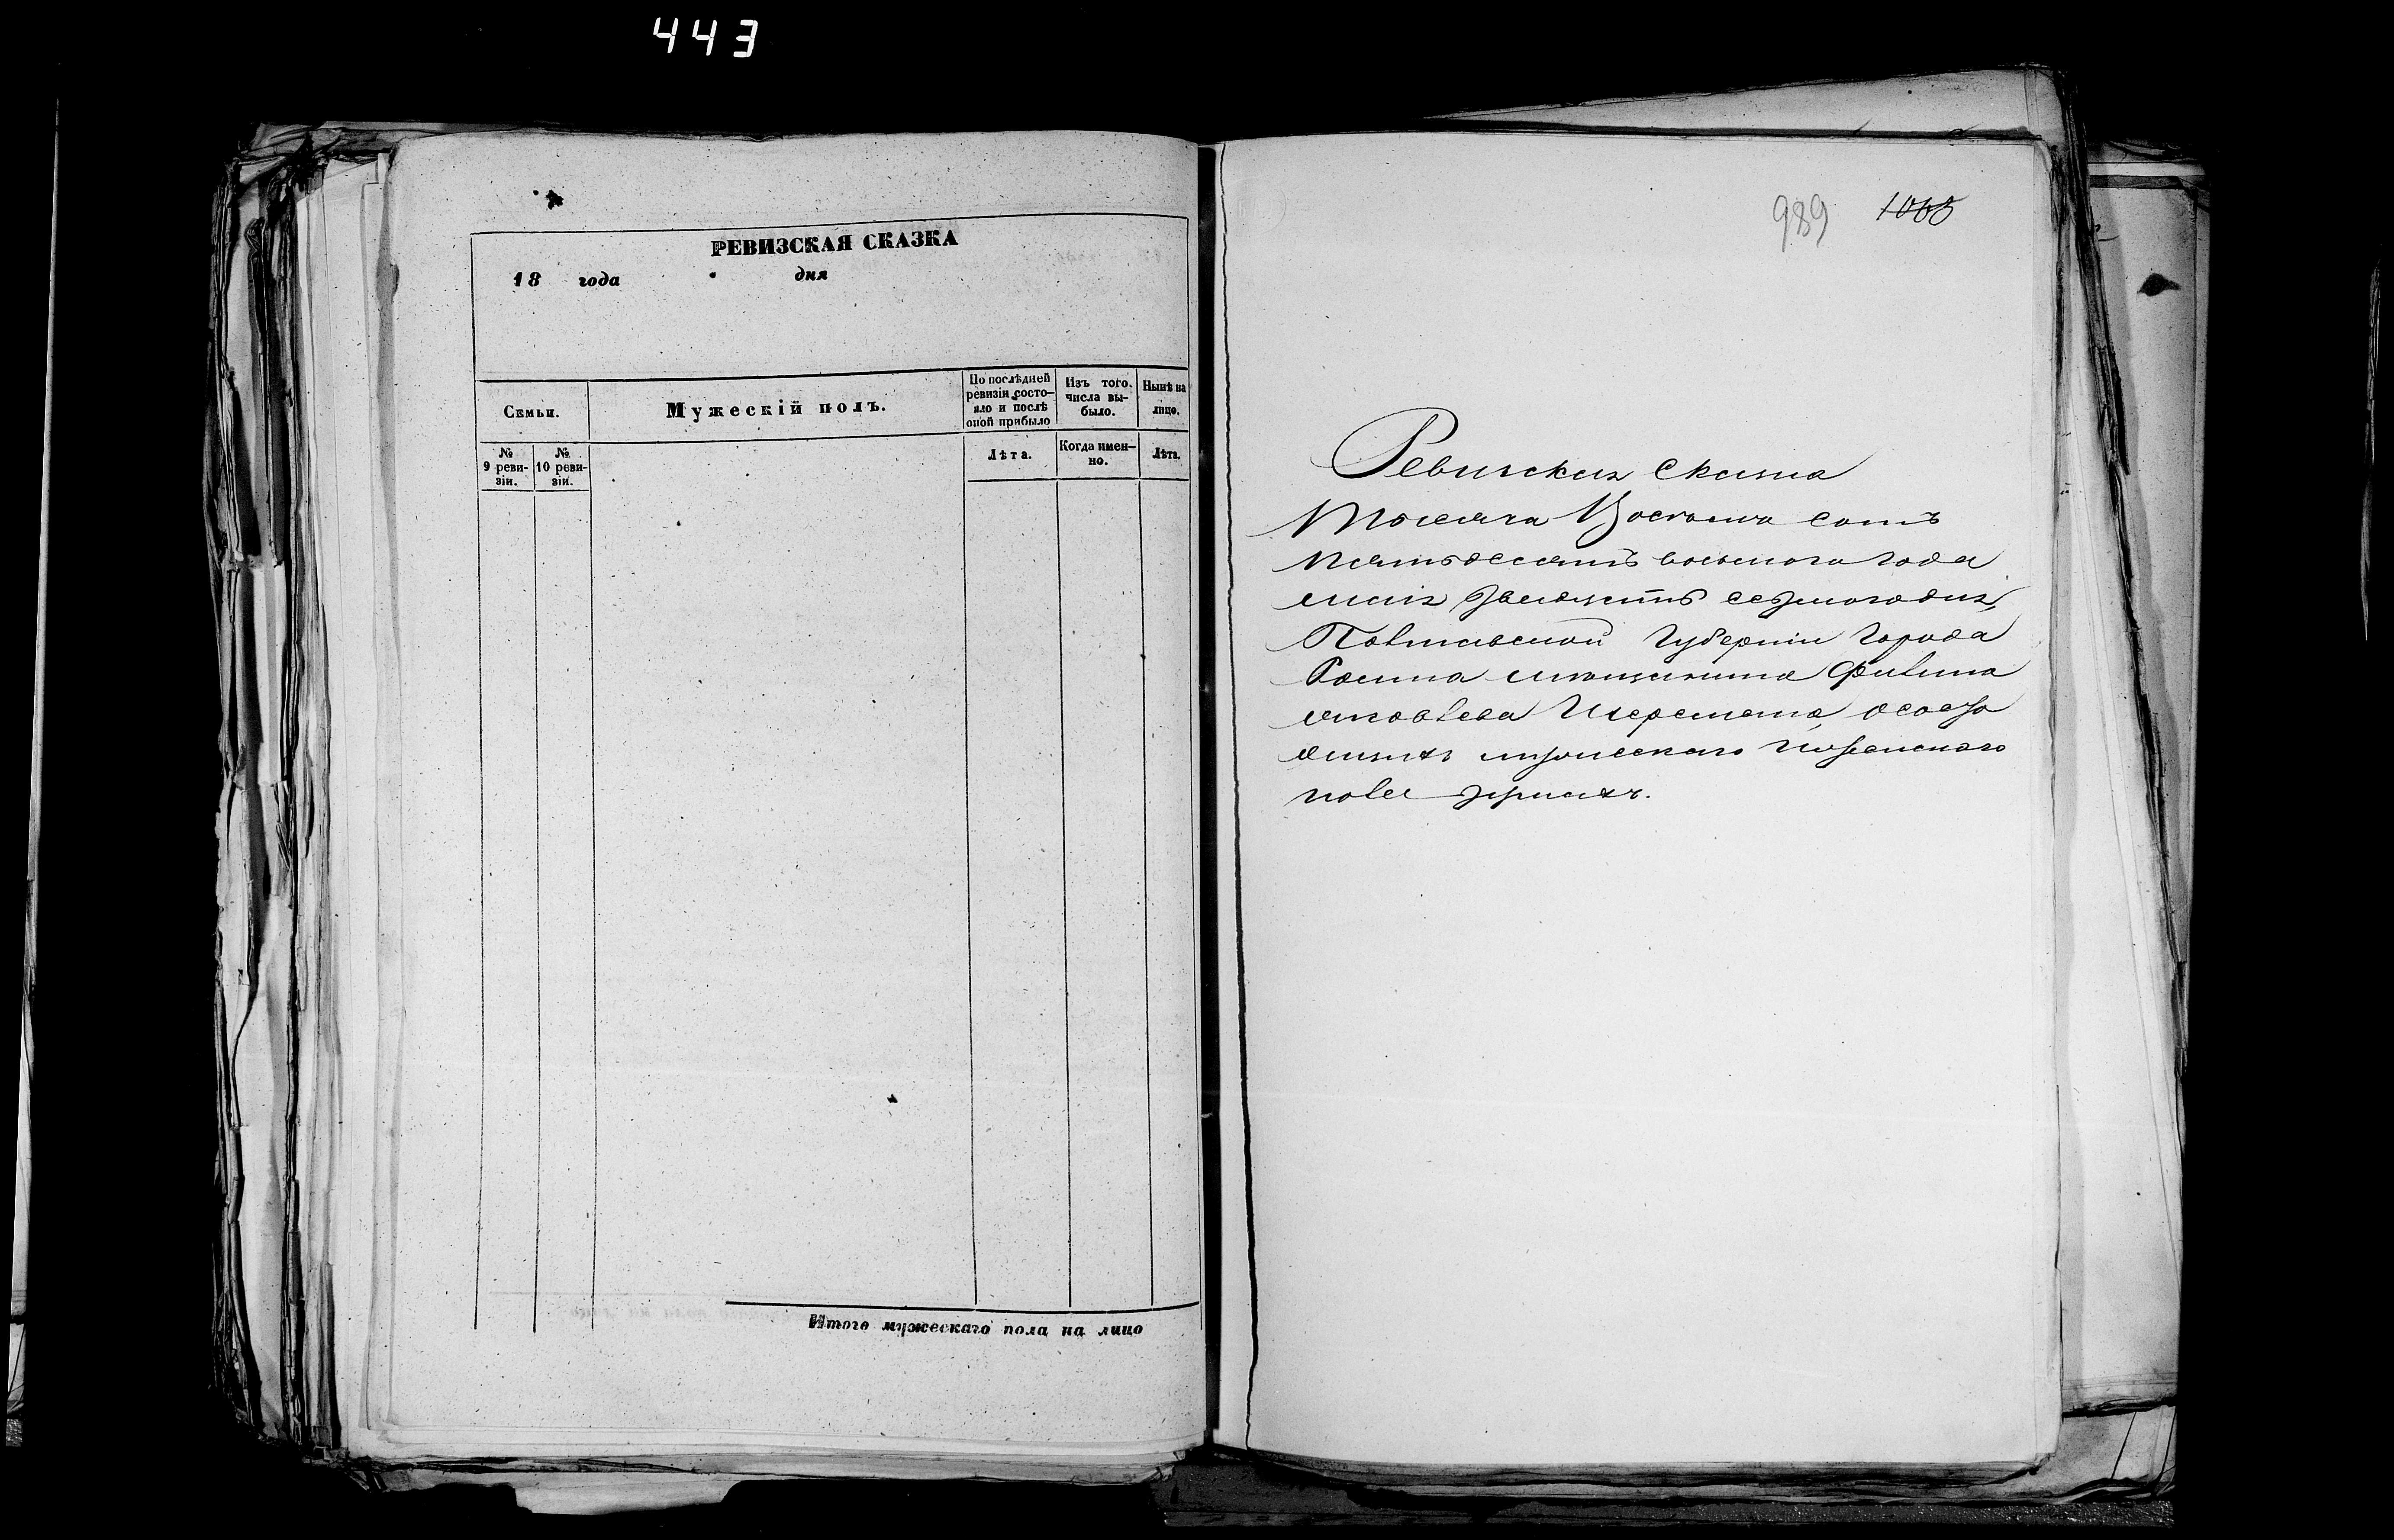 443
РЕВИЗСКАЯ СКАЗКА
18 года дня
Семьи.
Мужескій полъ.
По послѣдней ревизіи состояло и послѣ оной прибыло
Изъ того числа выбыло.
Нынѣ на лицо.
№ 9 ревизіи.
№ 10 ревизіи.
Лѣта.
Когда именно.
Лѣта.
Итого мужескаго пола на лицо
989 1065
Ревизская сказка
Тысяча Восемь сотъ
пятьдесятъ восьмого года
маія двадцать седьмого дня,
Полтавской Губерніи Города
Ромна мѣщанина Филипа
Яковлева Шеремета, о состо
ящихъ мужескаго и женскаго
пола душахъ.